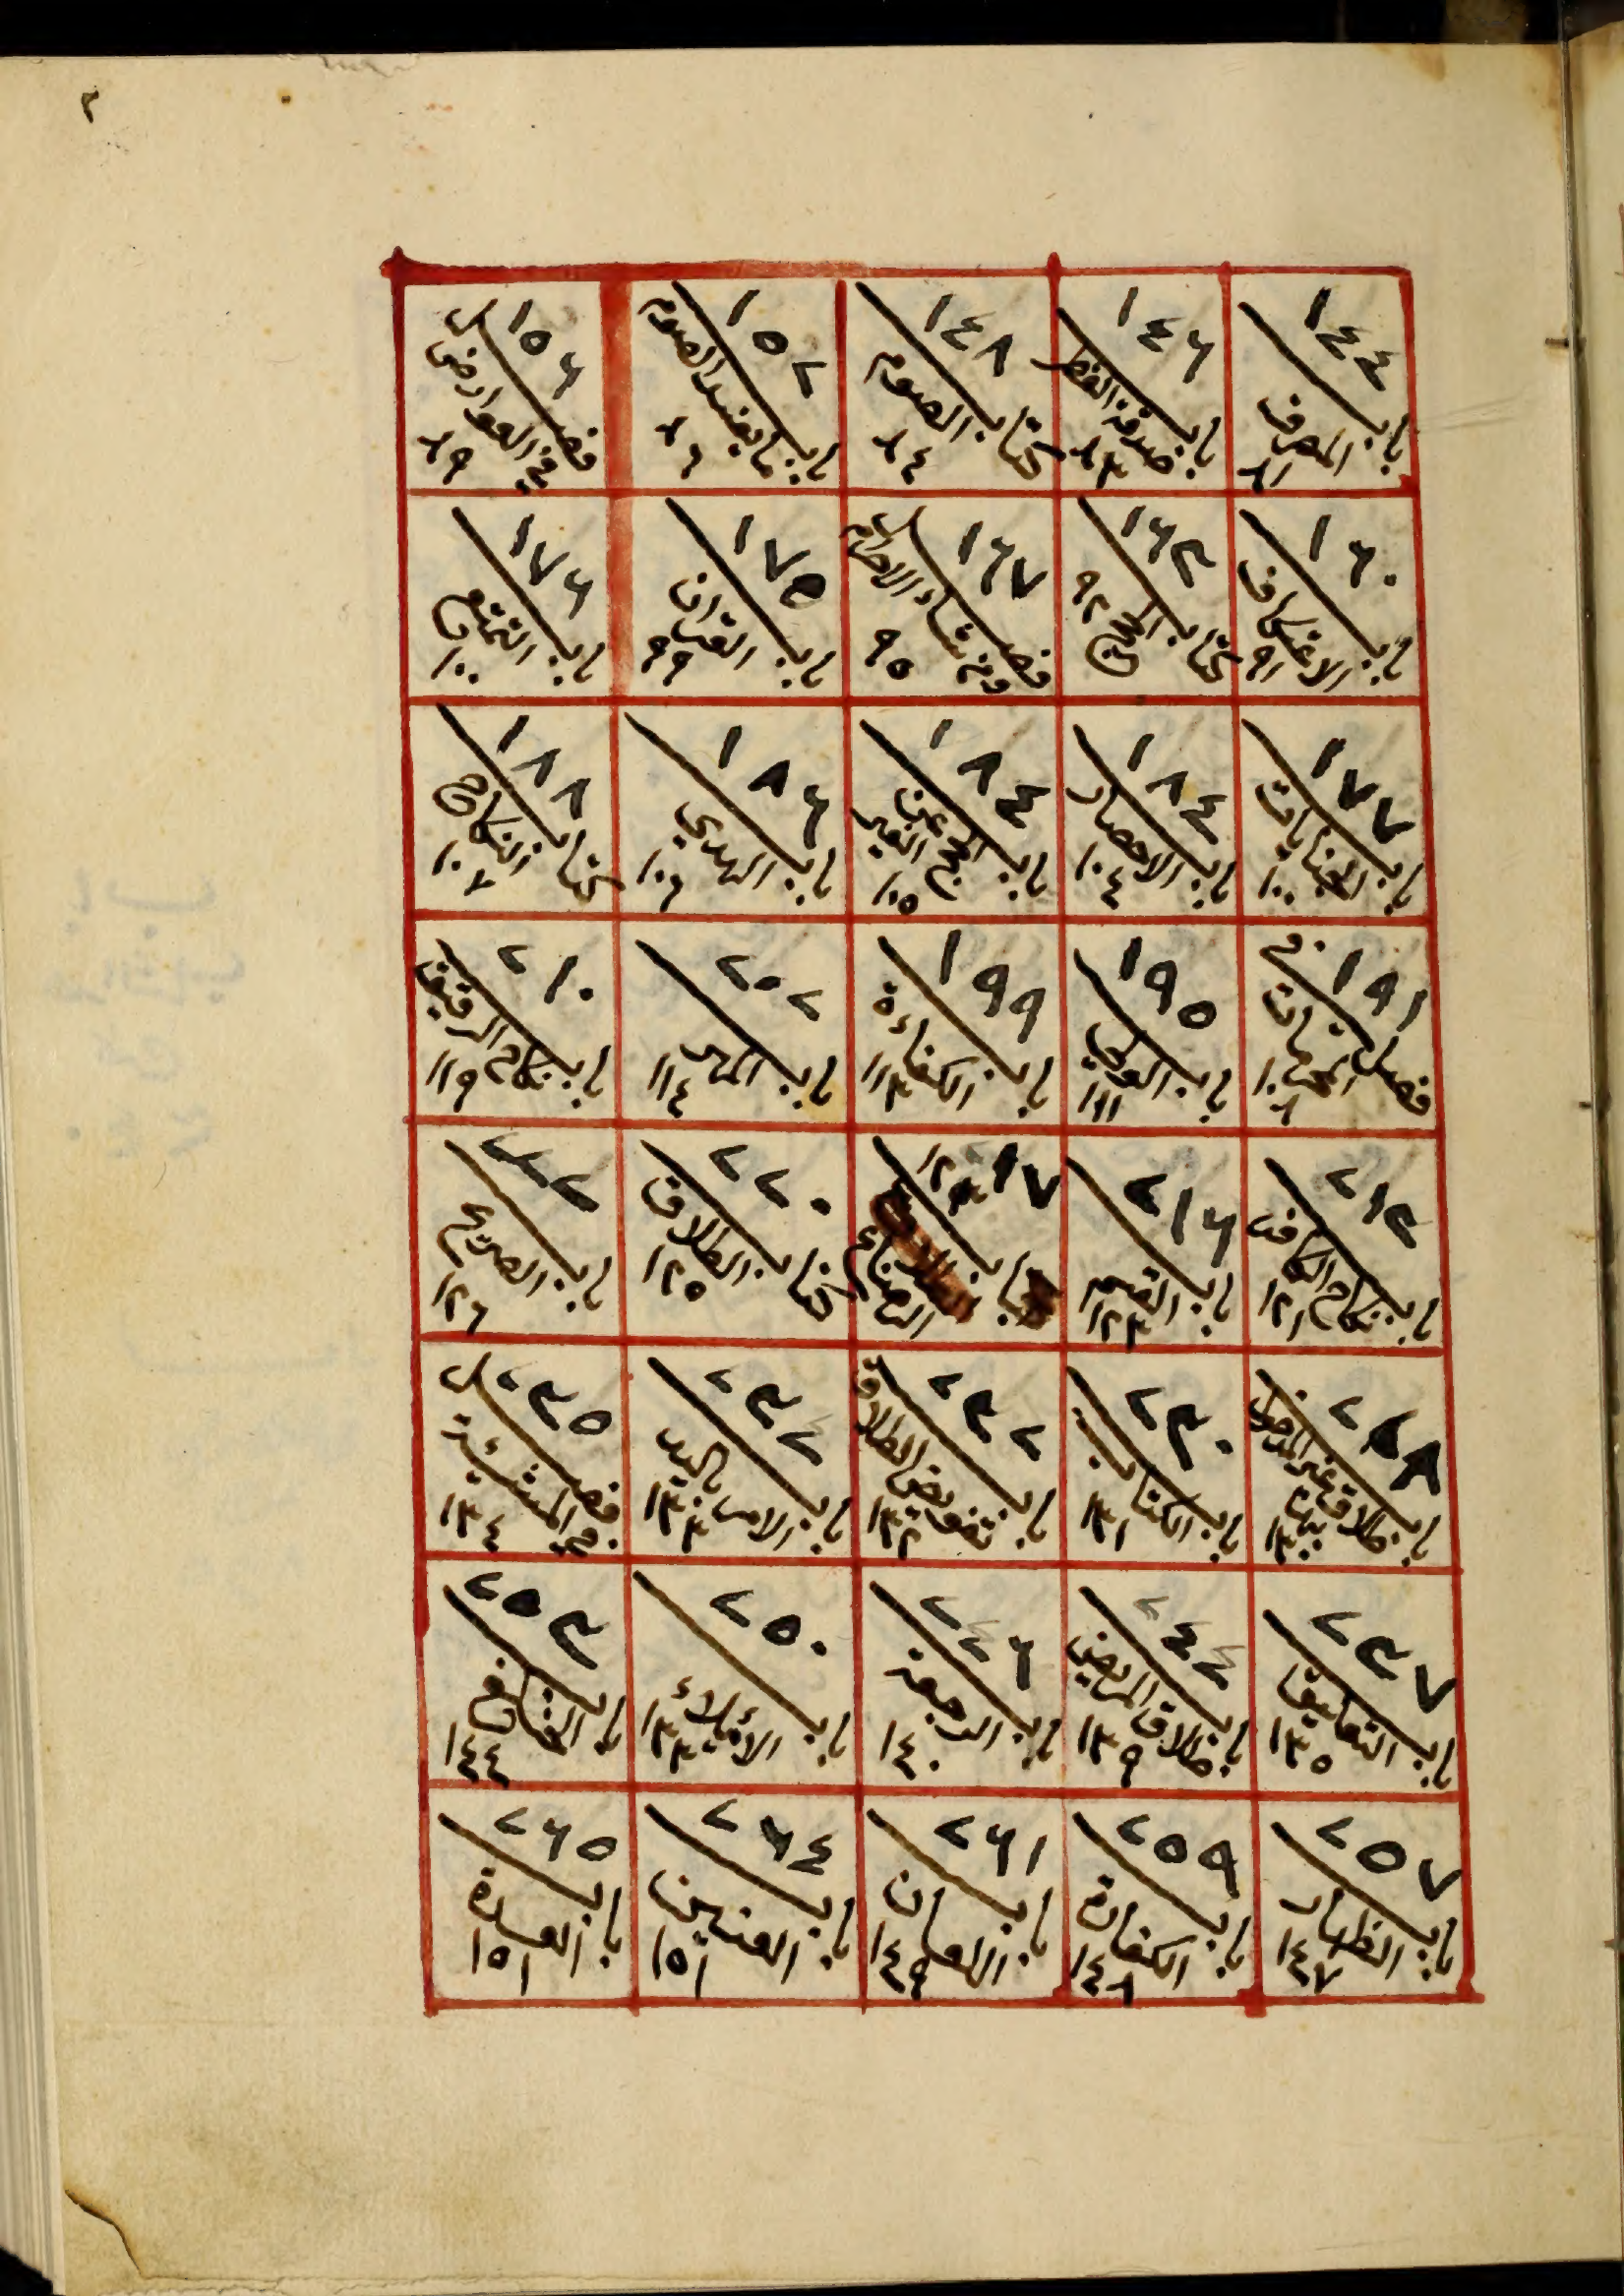 ٢
١٤٤ باب المصرف ٨١
١٤٦ باب صدقة الفطر ٨٣
١٤٨ كتاب الصوم ٨٤
١٥٢ باب ما يفسد الصوم ٨٦
١٥٦ فصل في العوارض ٨٩
١٦٠ باب الاعتكاف ٩١
١٦٣ كتاب الحج ٩٢
١٦٧ فصل ومن شاء الاحرام ٩٥
١٧٥ باب القران ٩٩
١٧٦ باب التمتع ١٠٠
١٧٧ باب الجنايات ١٠٠
١٨٤ باب الاحصار ١٠٤
١٨٤ باب الحج عن الغير ١٠٥
١٨٦ باب الهدي ١٠٦
١٨٨ كتاب النكاح ١٠٧
١٩١ فصل في المحرمات ١٠٨
١٩٥ باب الولي ١١١
١٩٩ باب الكفاءة ١١٣
٢٠٢ باب المهر ١١٤
٢١٠ باب نكاح الرقيق ١١٩
٢١٣ باب نكاح الكافر ١٢١
٢١٦ باب القسم ١٢٣
٢١٧ الرضاع ١٢٣
٢٢٠ كتاب الطلاق ١٢٥
باب الصريح ١٢٦
باب طلاق غير المدخول بها ١٣٠
٢٣٠ باب الكنايات ١٣١
٢٣٢ باب تفويض الطلاق ١٣٢
باب الامر باليد ١٣٣
٢٣٥ فصل في المشيئة ١٣٤
٢٣٧ باب التعليق ١٣٥
باب طلاق المريض ١٣٩
٢٤٦ باب الرجعة ١٤٠
٢٥٠ باب الايلاء
٢٥٣ باب الخلع ١٤٤
٢٥٧ باب الظهار ١٤٧
٢٥٩ باب الكفارة ١٤٨
٢٦١ باب اللعان ١٤٩
٢٦٤ باب العنين ١٥١
٢٦٥ باب العدة ١٥١